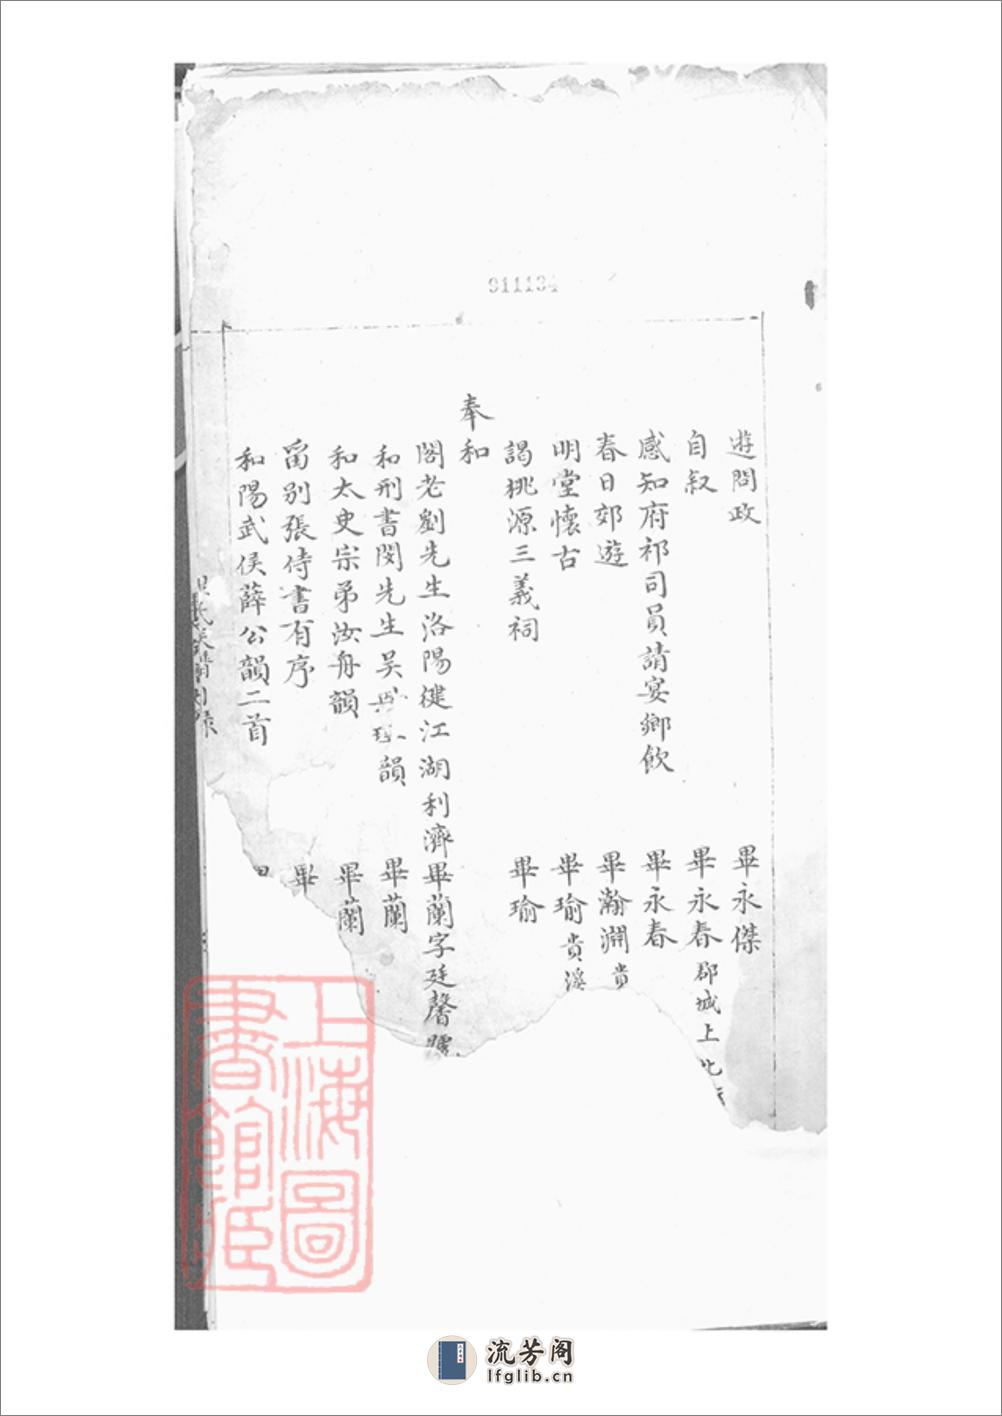 911134
遊問政 畢永傑
自叙 畢永春郡城上北
感知府祁司員請宴鄉飲 畢永春
春日郊遊 畢瀚淵貴
明堂懷古 畢瑜貴溪
謁桃源三義祠 畢瑜
奉和
閣老劉先生洛陽健江湖利濟 畢蘭字廷馨號
和刑書閔先生吴 韻 畢蘭
和太史宗弟汝舟韻 畢蘭
留别張侍書有序 畢
和陽武侯薛公韻二首
上海圖書館藏
流芳阁
lfglib.cn